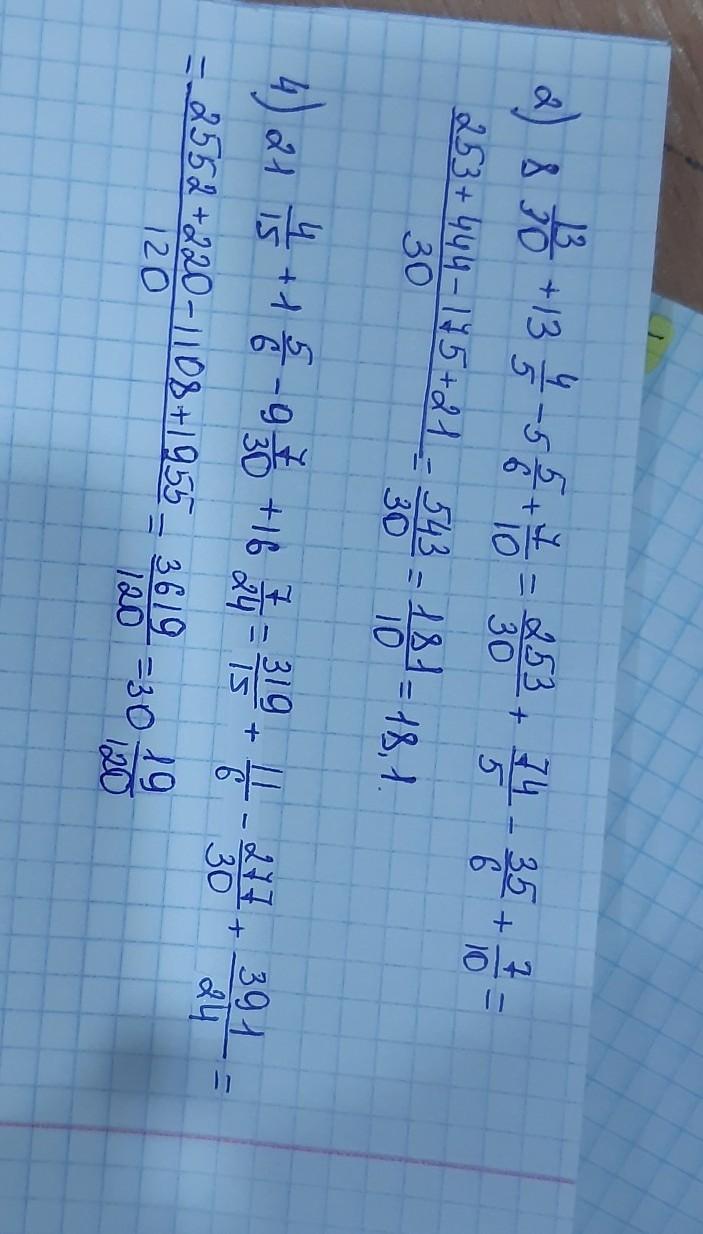 2) 8 13/30 + 13 4/5 - 5 5/6 + 7/10 = 253/30 + 74/5 - 35/6 + 7/10 =
(253 + 444 - 175 + 21)/30 = 543/30 = 181/10 = 18,1.
4) 21 4/15 + 1 5/6 - 9 7/30 + 16 7/24 = 319/15 + 11/6 - 277/30 + 391/24 =
= (2552 + 220 - 1108 + 1955)/120 = 3619/120 = 30 19/120